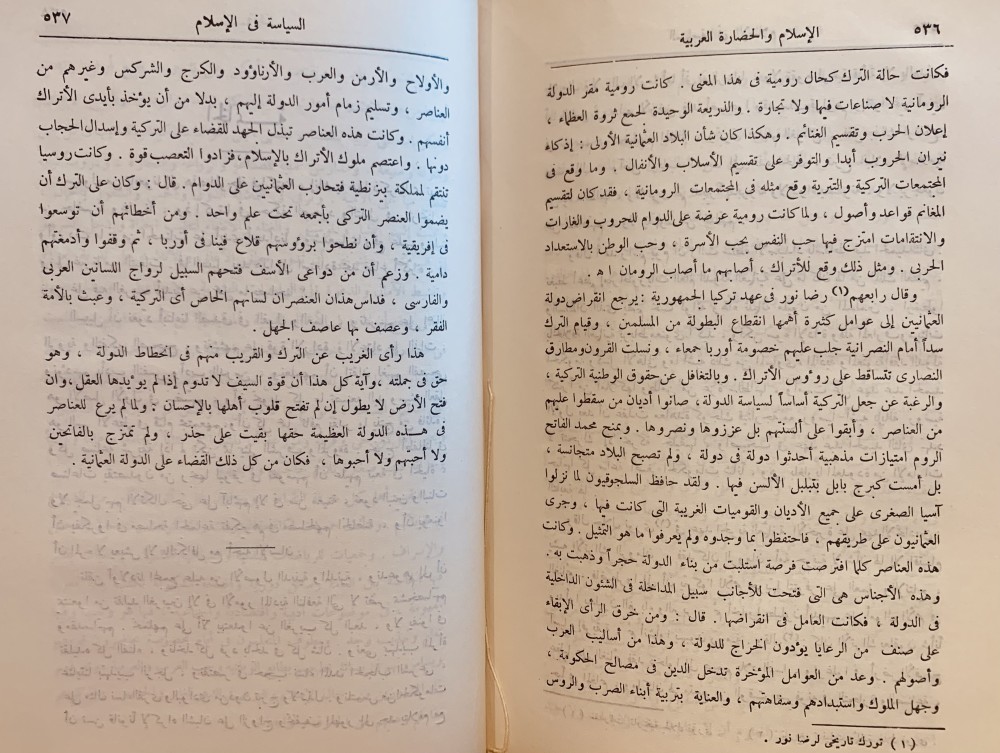 ٥٣٦
الإسلام والحضارة العربية
فكانت حالة الترك كحال رومية فى هذا المعنى . كانت رومية مقر الدولة
الرومانية لا صناعات فيها ولا تجارة . والذريعة الوحيدة لجمع ثروة العظماء ،
إعلان الحرب وتقسيم الغنائم . وهكذا كان شأن البلاد العثمانية الأولى : إذكاء
نيران الحروب أبدا والتوفر على تقسيم الأسلاب والأنفال . وما وقع فى
المجتمعات التركية والتترية وقع مثله فى المجتمعات الرومانية ، فقد كان لتقسيم
المغانم قواعد وأصول ، ولما كانت رومية عرضة على الدوام للحروب والغارات
والانتقامات امتزج فيها حب النفس بحب الأسرة ، وحب الوطن بالاستعداد
الحربى . ومثل ذلك وقع للأتراك ، أصابهم ما أصاب الرومان ا ه .
وقال رابعهم (١) رضا نور فى عهد تركيا الجمهورية : يرجع انقراض دولة
العثمانيين إلى عوامل كثيرة أهمها انقطاع البطولة من المسلمين ، وقيام الترك
سداً أمام النصرانية جلب عليهم خصومة أوربا جمعاء ، ونسلت القرون ومطارق
النصارى تتساقط على رءوس الأتراك . وبالتغافل عن حقوق الوطنية التركية ،
والرغبة عن جعل التركية أساساً لسياسة الدولة ، صانوا أديان من سقطوا عليهم
من العناصر ، وأبقوا على ألسنتهم بل عززوها ونصروها . وبمنح محمد الفاتح
الروم امتيازات مذهبية أحدثوا دولة فى دولة ، ولم تصبح البلاد متجانسة ،
بل أمست كبرج بابل بتبلبل الألسن فيها . ولقد حافظ السلجوقيون لما نزلوا
آسيا الصغرى على جميع الأديان والقوميات الغريبة التى كانت فيها ، وجرى
العثمانيون على طريقهم ، فاحتفظوا بما وجدوه ولم يعرفوا ما هو التمثيل . وكانت
هذه العناصر كلما افترصت فرصة استلبت من بناء الدولة حجراً وذهبت به .
وهذه الأجناس هى التى فتحت للأجانب سبيل المداخلة فى الشئون الداخلية
فى الدولة ، فكانت العامل فى انقراضها . قال : ومن خرق الرأى الإبقاء
على صنف من الرعايا يؤدون الخراج للدولة ، وهذا من أساليب العرب
وأصولهم . وعد من العوامل المؤخرة تدخل الدين فى مصالح الحكومة ،
وجهل الملوك واستبدادهم وسفاهتهم ، والعناية بتربية أبناء الصرب والروس
(١) تورك تاريخى لرضا نور .
السياسة فى الإسلام
٥٣٧
والأولاح والأرمن والعرب والأرناؤود والكرج والشركس وغيرهم من
العناصر ، وتسليم زمام أمور الدولة إليهم ، بدلا من أن يؤخذ بأيدى الأتراك
أنفسهم . وكانت هذه العناصر تبذل الجهد للقضاء على التركية وإسدال الحجاب
دونها . واعتصم ملوك الأتراك بالإسلام ، فزادوا التعصب قوة . وكانت روسيا
تنتقم لمملكة بيزنطية فتحارب العثمانيين على الدوام . قال : وكان على الترك أن
يضموا العنصر التركى بأجمعه تحت علم واحد . ومن أخطائهم أن توسعوا
فى إفريقية ، وأن نطحوا برؤوسهم قلاع فينا فى أوربا ، ثم وقفوا وأدمغتهم
دامية . وزعم أن من دواعى الأسف فتحهم السبيل لرواج اللسانين العربى
والفارسى ، فداس هذان العنصران لسانهم الخاص أى التركية ، وعبث بالأمة
الفقر ، وعصف بها عاصف الجهل .
هذا رأى الغريب عن الترك والقريب منهم فى انحطاط الدولة ، وهو
حق فى جملته ، وآية كل هذا أن قوة السيف لا تدوم إذا لم يؤيدها العقل ، وان
فتح الأرض لا يطول إن لم تفتح قلوب أهلها بالإحسان . ولما لم يرع للعناصر
فى هذه الدولة العظيمة حقها بقيت على حذر ، ولم تمتزج بالفاتحين
ولا أحبتهم ولا أحبوها ، فكان من كل ذلك القضاء على الدولة العثمانية .